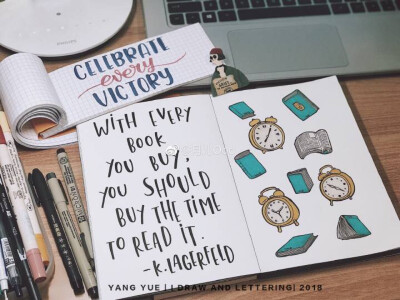 CELEBRATE
every
VICTORY
WITH EVERY
BOOK
YOU BUY,
YOU SHOULD
BUY THE TIME
TO READ IT.
-K.LAGERFELD
YANG YUE | I DRAW AND LETTERING| 2018